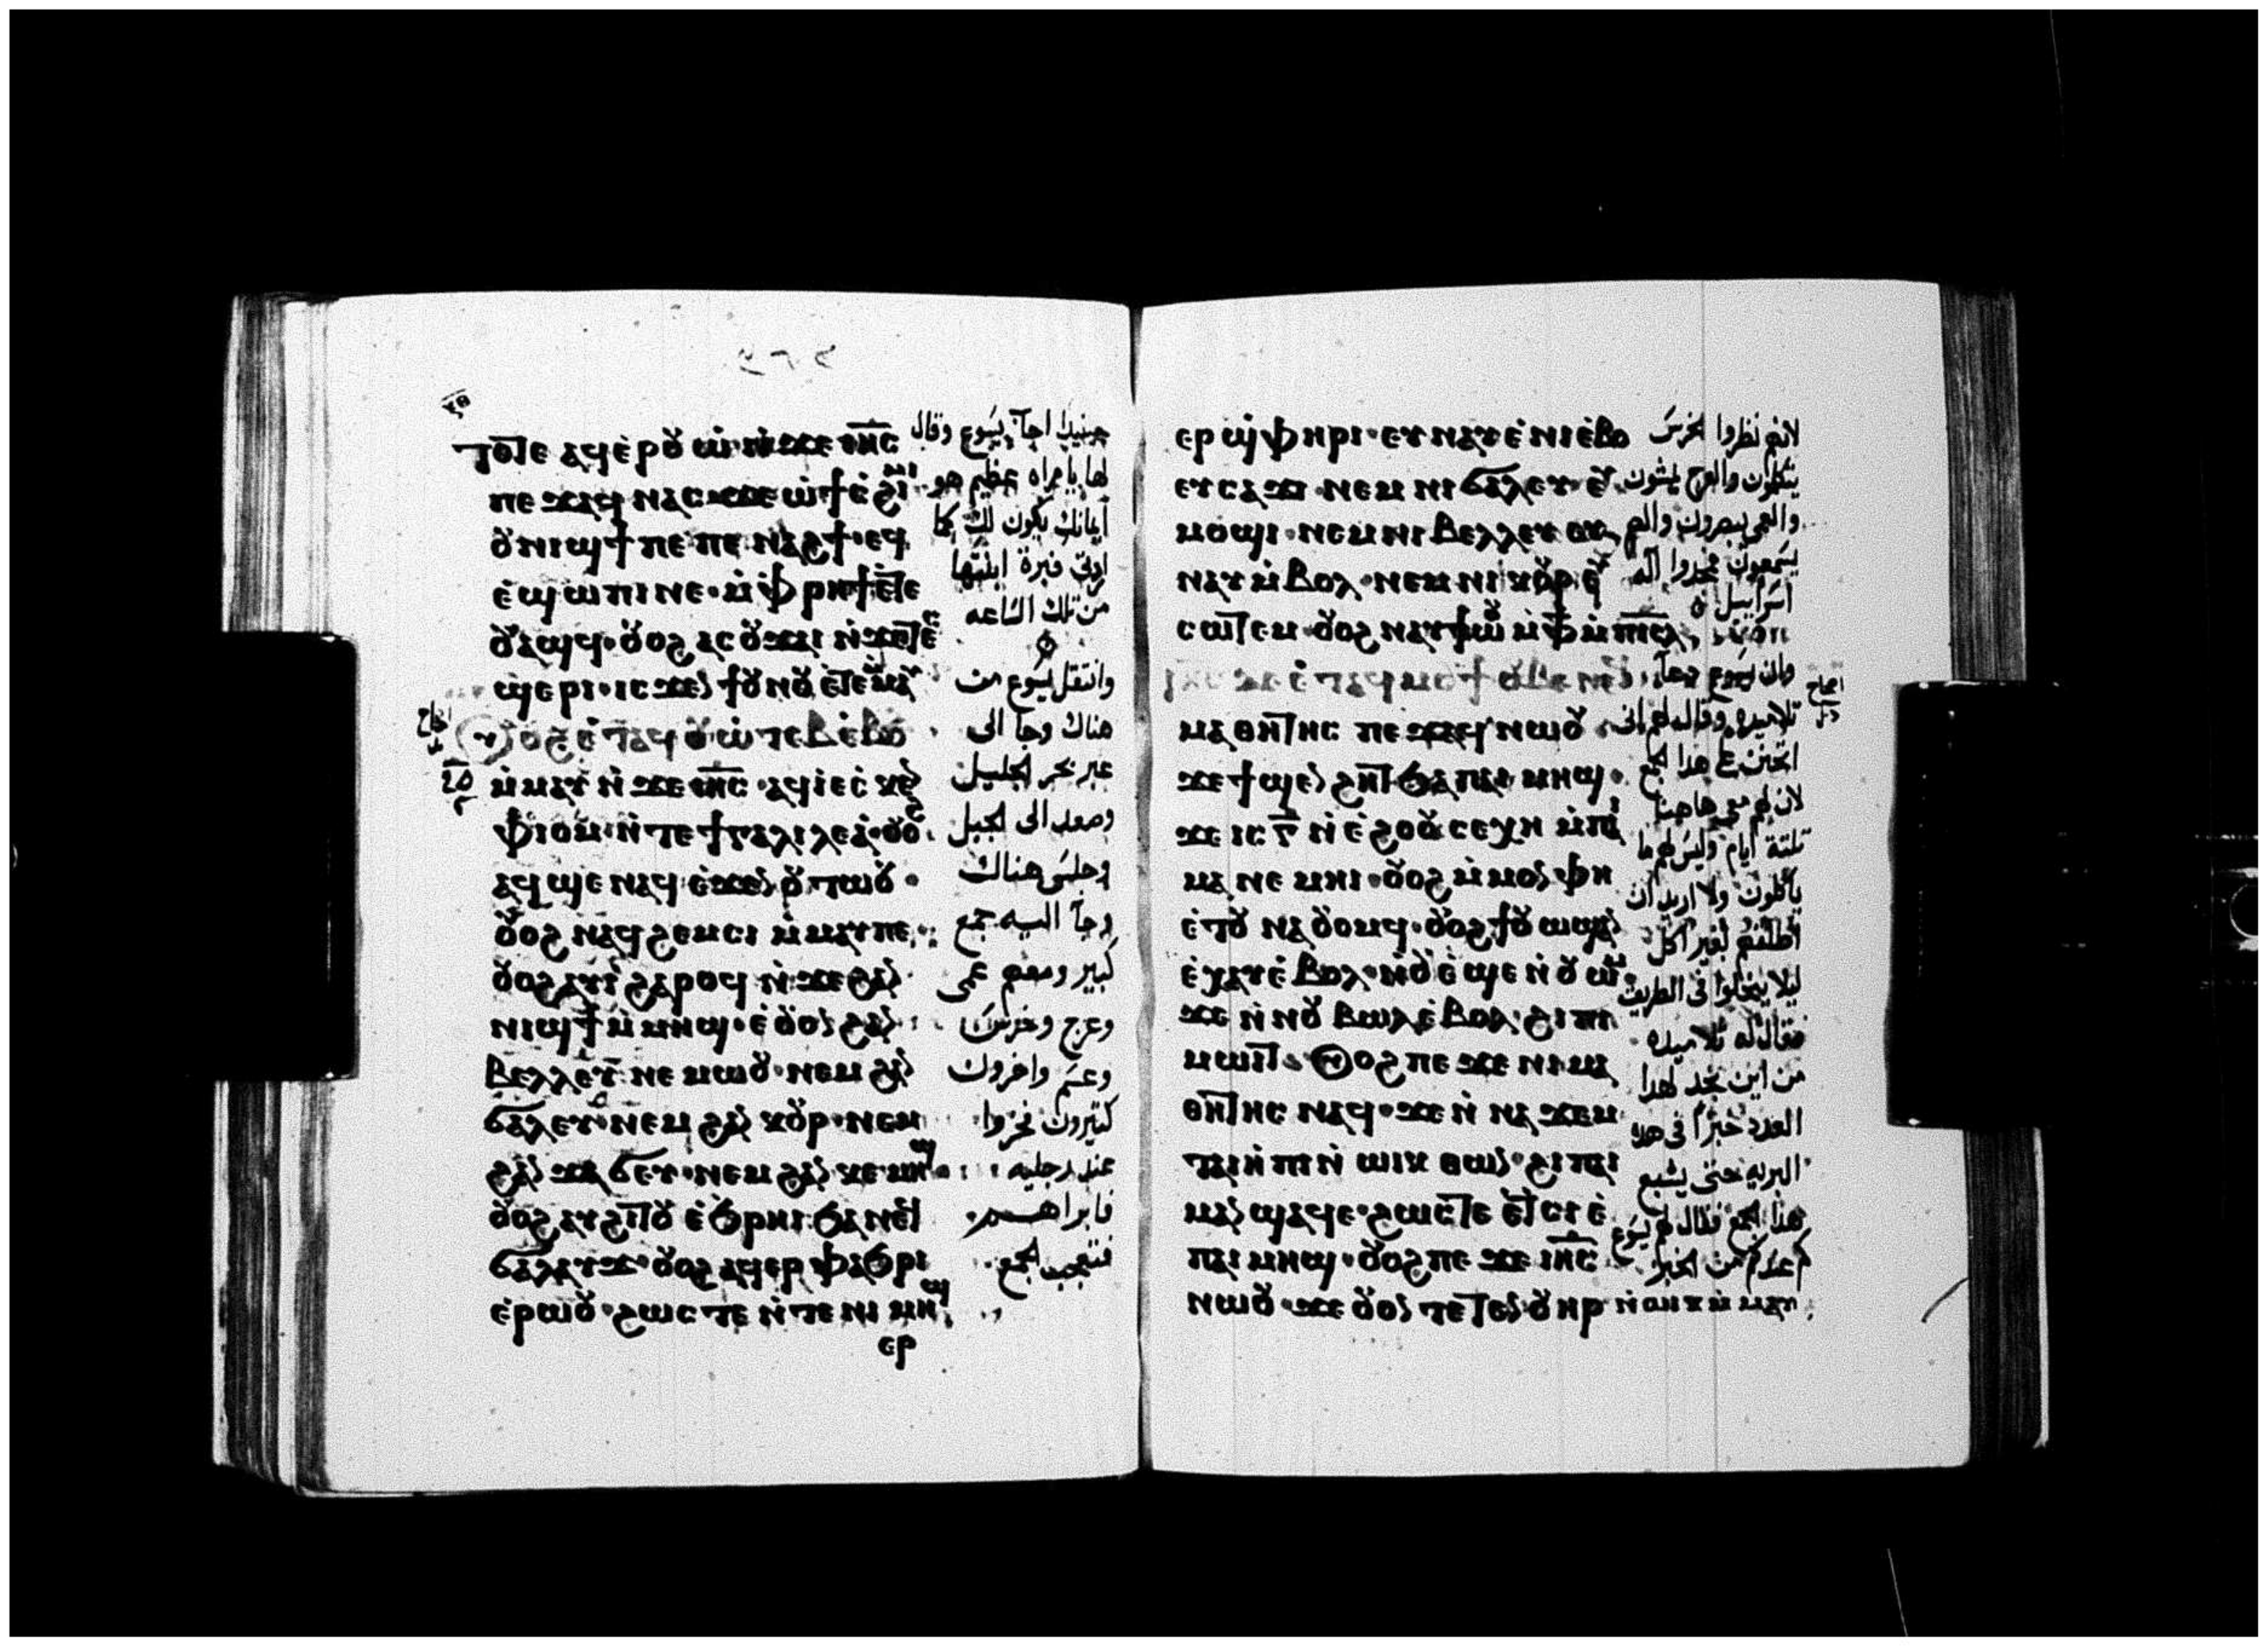 ⲝⲑ
ⲧⲟⲧⲉ ⲁϥⲉ̀ⲣⲟⲩⲱ ⲛ̀ϫⲉ ⲓⲏⲥ
ⲡⲉϫⲁϥ ⲛⲁⲥ ϫⲉ ⲱ̀ ϯⲥ̀ϩⲓⲙⲓ
ⲟⲩⲛⲓϣϯ ⲡⲉ ⲡⲉⲛⲁϩϯ ⲉϥ
ⲉ̀ϣⲱⲡⲓ ⲛⲉ ⲙ̀ⲫⲣⲏϯ ⲉ̀ⲧⲉ
ⲟⲩⲁϣϥ ⲟⲩⲟϩ ⲁⲥⲟⲩϫⲁⲓ ⲛ̀ϫⲉ ⲧⲉⲥ
ϣⲉⲣⲓ ⲓⲥϫⲉⲛ ϯⲟⲩⲛⲟⲩ ⲉ̀ⲧⲉⲙⲙⲁⲩ
ⲟⲩⲟϩ ⲉ̀ⲧⲁϥⲟⲩⲱⲧⲉⲃ ⲉ̀ⲃⲟⲗ
ⲙ̀ⲙⲁⲩ ⲛ̀ϫⲉ ⲓⲏⲥ ⲁϥⲓ̀ ⲉⲥⲕⲉⲛ
ⲫⲓⲟⲙ ⲛ̀ⲧⲉ ϯⲅⲁⲗⲓⲗⲉⲁ ⲟⲩⲟϩ
ⲁϥϣⲉⲛⲁϥ ⲉ̀ϫⲉⲛ ⲟⲩⲧⲱⲟⲩ
ⲟⲩⲟϩ ⲛⲁϥϩⲉⲙⲥⲓ ⲙ̀ⲙⲁⲩ ⲡⲉ
ⲟⲩⲟϩ ⲁⲩⲓ̀ ϩⲁⲣⲟϥ ⲛ̀ϫⲉ ϩⲁⲛ
ⲛⲓϣϯ ⲙ̀ⲙⲏϣ ⲉ̀ⲟⲩⲟⲛ ϩⲁⲛ
ⲃⲉⲗⲗⲉⲩ ⲛⲉⲙⲱⲟⲩ ⲛⲉⲙ ϩⲁⲛ
ϭⲁⲗⲉⲩ ⲛⲉⲙ ϩⲁⲛ ⲕⲟⲩⲣ ⲛⲉⲙ
ϩⲁⲛ ϫⲁϭⲉⲩ ⲛⲉⲙ ϩⲁⲛ ⲕⲉⲙⲏϣ
ⲟⲩⲟϩ ⲁⲩϩⲓⲧⲟⲩ ⲉ̀ϧⲣⲏⲓ ϧⲁ ⲛⲉϥ
ϭⲁⲗⲁⲩϫ ⲟⲩⲟϩ ⲁϥⲉⲣⲫⲁϧⲣⲓ
ⲉ̀ⲣⲱⲟⲩ ϩⲱⲥⲧⲉ ⲛ̀ⲧⲉ ⲛⲓⲙⲏϣ
ⲉⲣ
حينيدا اجاب يسوع وقال
لها يا مراه عظيم هو
ايمانك يكون لك كما
اردتي فبرة ابنتها
من تلك الساعه
وانتقل يسوع من
هناك وجا الى
عبر بحر الجليل
وصعد الى الجبل
وجلس هناك
وجا اليه جمع
كبير ومعهم عمي
وعرج وخرس
وعسم واخرون
كتيرون فخروا
عند رجليه
فابراهم
فتعجب الجمع
ⲉⲣϣ̀ⲫⲏⲣⲓ ⲉⲩⲛⲁⲩ ⲉ̀ⲛⲓⲉ̀ⲃⲟ
ⲉⲩⲥⲁϫⲓ ⲛⲉⲙ ⲛⲓϭⲁⲗⲉⲩ ⲉⲩ
ⲙⲟϣⲓ ⲛⲉⲙ ⲛⲓⲃⲉⲗⲗⲉⲩ ⲉⲩ
ⲛⲁⲩ ⲙ̀ⲃⲟⲗ ⲛⲉⲙ ⲛⲓⲕⲟⲩⲣ ⲉⲩ
ⲥⲱⲧⲉⲙ ⲟⲩⲟϩ ⲛⲁⲩϯⲱⲟⲩ ⲙ̀ⲫϯ ⲙ̀ⲡⲓⲥⲗ
ⲓⲏⲥ ⲇⲉ ⲉ̀ⲧⲁϥⲙⲟⲩϯ ⲟⲩⲃⲉ ⲛⲉϥ
ⲙⲁⲑⲏⲧⲏⲥ ⲡⲉϫⲁϥ ⲛⲱⲟⲩ
ϫⲉ ϯϣⲉⲛϩⲏⲧ ϧⲁ ⲡⲁⲓⲙⲏϣ
ϫⲉ ⲓⲥ ⲅ̅ ⲛ̀ⲉ̀ϩⲟⲟⲩ ⲥⲉⲭⲏ ⲙ̀ⲡⲁⲓ
ⲙⲁ ⲛⲉⲙⲏⲓ ⲟⲩⲟϩ ⲙ̀ⲙⲟⲛ ⲫⲏ
ⲉ̀ⲧⲟⲩⲛⲁⲟⲩⲟⲙϥ ⲟⲩⲟϩ ϯⲟⲩⲱϣ ⲁⲛ
ⲉ̀ⲭⲁⲩ ⲉ̀ⲃⲟⲗ ⲛ̀ⲟⲩⲉ̀ϣⲉⲛ ⲟⲩⲱⲙ
ϫⲉ ⲛ̀ⲛⲟⲩⲃⲱⲗ ⲉ̀ⲃⲟⲗ ϩⲓ ⲡⲓ
ⲙⲱⲓⲧ ⲟⲩⲟϩ ⲡⲉϫⲉ ⲛⲓⲙⲁ
ⲑⲏⲧⲏⲥ ⲛⲁϥ ϫⲉ ⲛ̀ⲛⲁϫⲉⲙ
ⲧⲁⲓⲏⲡⲓ ⲛ̀ⲱⲓⲕ ⲑⲱⲛ ϩⲓ ⲡⲁⲓ
ⲙⲁ ⲛ̀ϣⲁϥⲉ ϩⲱⲥⲧⲉ ⲉ̀ⲧⲥⲓⲉ̀
ⲡⲁⲓⲙⲏϣ ⲟⲩⲟϩ ⲡⲉϫⲉ ⲓⲏⲥ
ⲛⲱⲟⲩ ϫⲉ ⲟⲩⲟⲛ ⲧⲉⲧⲉⲛ ⲟⲩⲏⲣ ⲛ̀ⲱⲓⲕ ⲙ̀ⲙⲁⲩ
لانهم نظروا الخرس
يتكلمون والعرج يمشون
والعمي يبصرون والصم
يسمعون فمجدوا اله
اسرائيل
وان يسوع دعا
تلاميده وقال لهم اني
اتحنن على هدا الجمع
لان لهم معي هاهنا
تلتة ايام وليس لهم ما
ياكلون ولا اريد ان
اطلقهم بغير اكل
ليلا ينحلوا في الطريق
فقال له تلاميده
من اين نجد لهدا
العدد خبزا في هده
البريه حتى يشبع
هدا الجمع فقال لهم يسوع
كم عندكم من الخبز